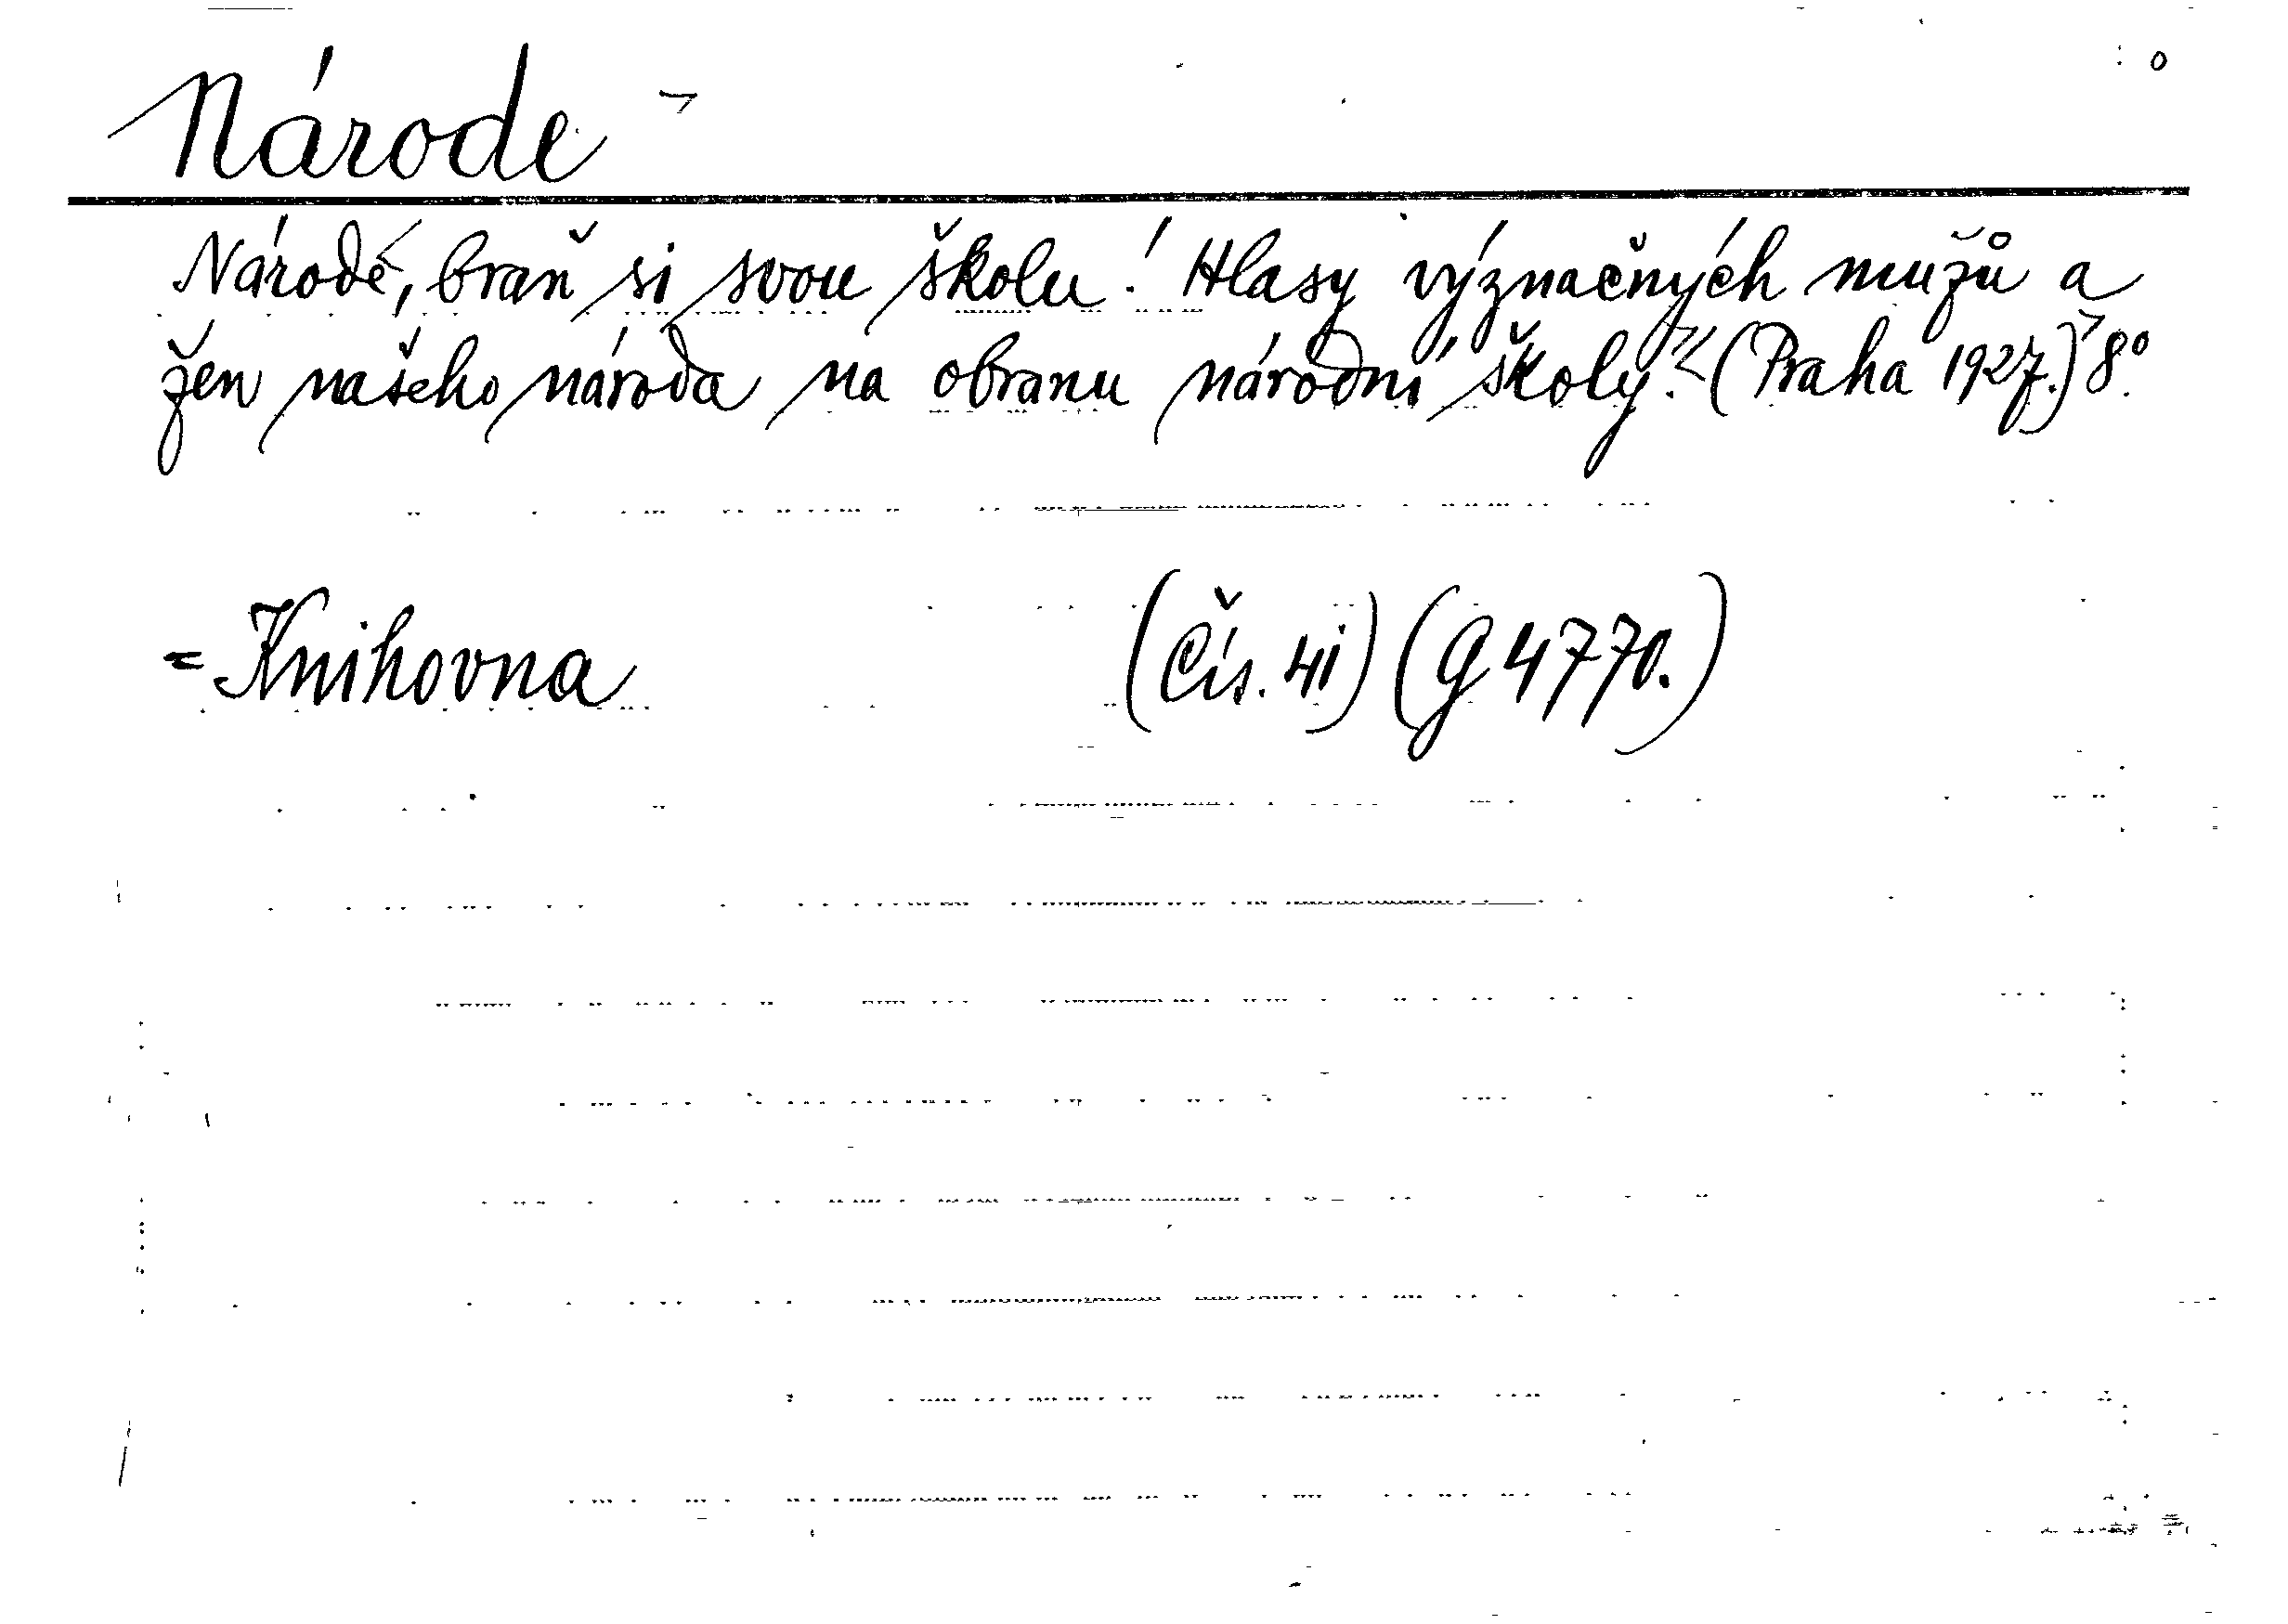 Národe
Národe, braň si svou školu! Hlasy význačných mužů a
žen našeho národa na obranu národní školy. (Praha 1927.) 8º.
= Knihovna (Čís. 41) (G 4770.)